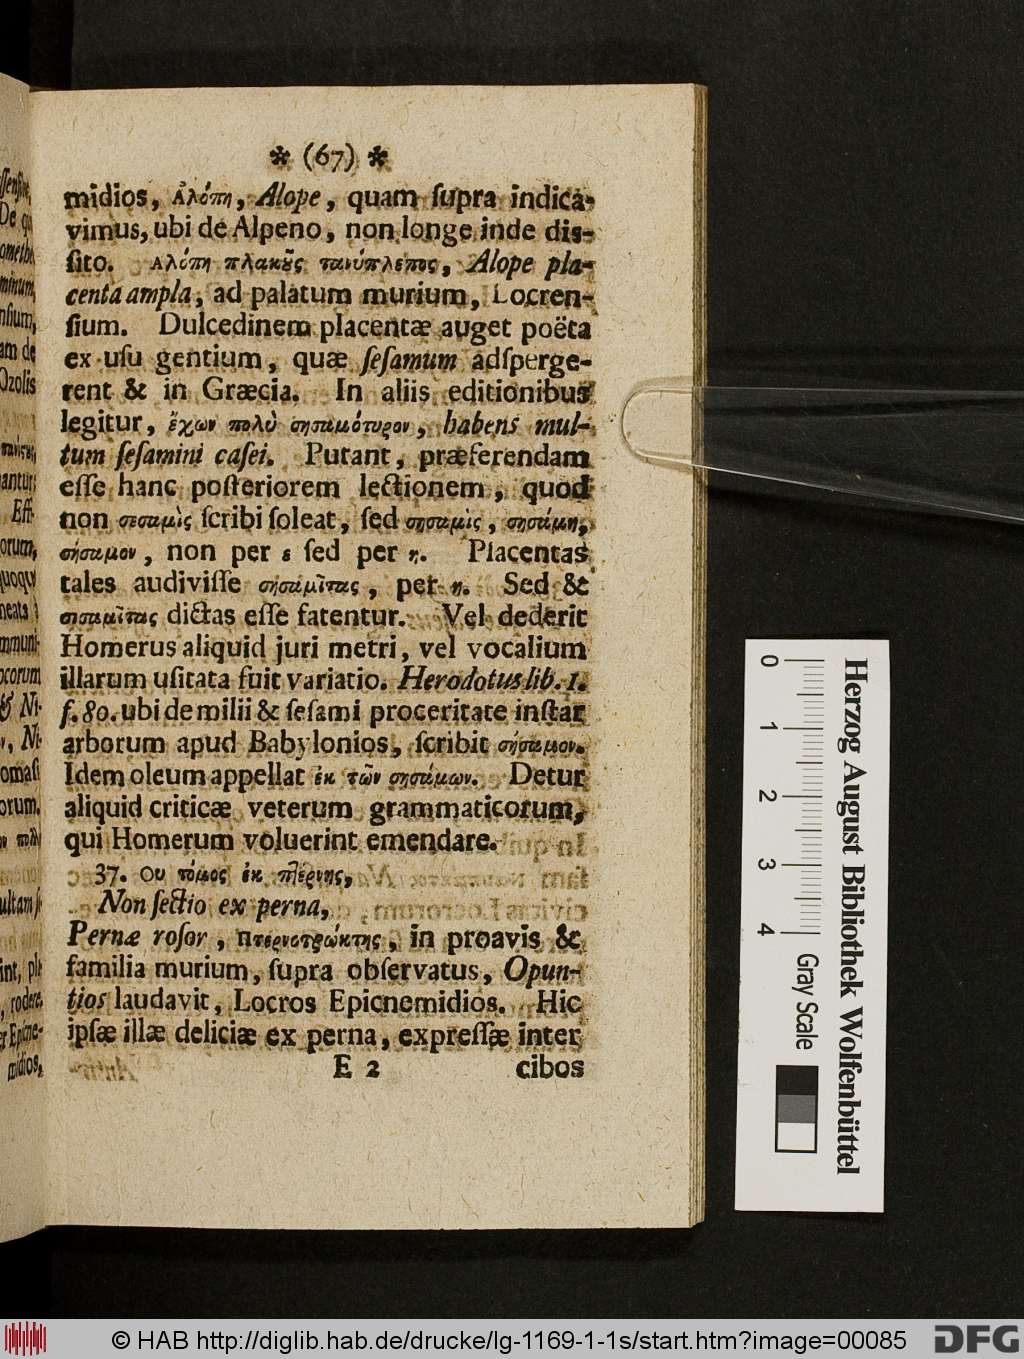 * (67) *
midios, Ἀλόπη, Alope, quam ſupra indica-
vimus, ubi de Alpeno, non longe inde dis-
ſito. Αλόπη πλακοῦς τανύπλεπος, Alope pla-
centa ampla, ad palatum murium, Locren-
ſium. Dulcedinem placentæ auget poëta
ex uſu gentium, quæ ſeſamum adſperge-
rent & in Græcia. In aliis editionibus
legitur, ἔχων πολὺ σησαμότυρον, habens mul-
tum ſeſamini caſei. Putant, præferendam
eſſe hanc poſteriorem lectionem, quod
non σεσαμὶς ſcribi ſoleat, ſed σησαμὶς, σησάμη,
σήσαμον, non per ε ſed per η. Placentas
tales audiviſſe σησαμῖτας, per η. Sed &
σισαμῖτας dictas eſſe fatentur. Vel dederit
Homerus aliquid juri metri, vel vocalium
illarum uſitata fuit variatio. Herodotus lib. 1.
f. 80. ubi de milii & ſeſami proceritate inſtar
arborum apud Babylonios, ſcribit σήσαμον.
Idem oleum appellat ἐκ τῶν σησάμων. Detur
aliquid criticæ veterum grammaticorum,
qui Homerum voluerint emendare.
37. Ου τόμος ἐκ πτέρνης,
Non ſectio ex perna,
Pernæ roſor, Πτερνοτρώκτης, in proavis &
familia murium, ſupra obſervatus, Opun-
tios laudavit, Locros Epicnemidios. Hic
ipſæ illæ deliciæ ex perna, expreſſæ inter
E 2 cibos
Herzog August Bibliothek Wolfenbüttel
0 1 2 3 4 Gray Scale
© HAB http://diglib.hab.de/drucke/lg-1169-1-1s/start.htm?image=00085 DFG